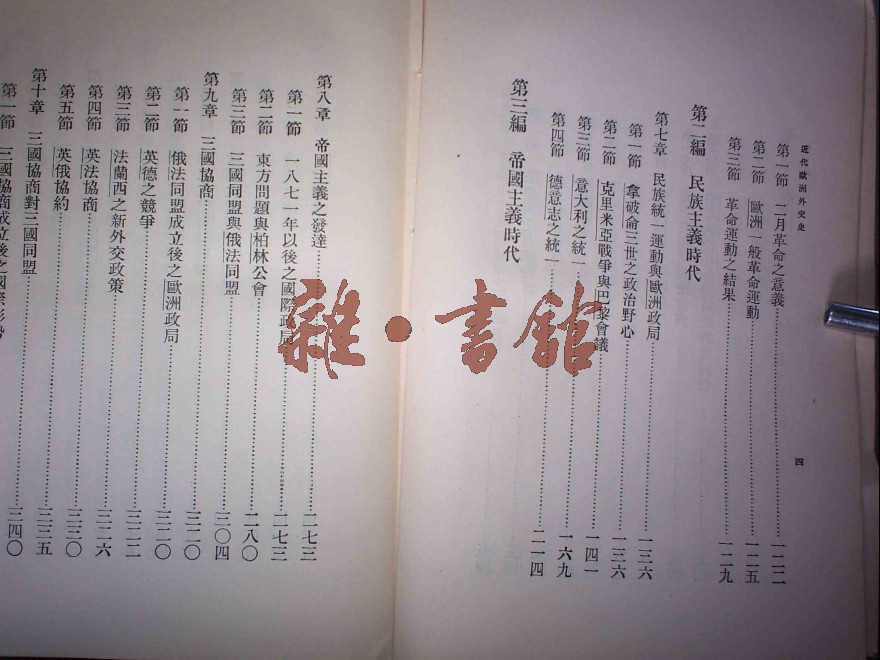 近代歐洲外交史
四
第一節 二月革命之意義……一二二
第二節 歐洲一般革命運動……一二五
第三節 革命運動之結果……一二九
第二編 民族主義時代
第七章 民族統一運動與歐洲政局……一三六
第一節 拿破侖三世之政治野心……一三六
第二節 克里米亞戰爭與巴黎會議……一四一
第三節 意大利之統一……一六九
第四節 德意志之統一……二一四
第三編 帝國主義時代
第八章 帝國主義之發達……二七三
第一節 一八七一年以後之國際政局……二七三
第二節 東方問題與柏林公會……二八〇
第三節 三國同盟與俄法同盟……三〇四
第九章 三國協商……三二〇
第一節 俄法同盟成立後之歐洲政局……三二〇
第二節 英德之競爭……三二二
第三節 法蘭西之新外交政策……三二六
第四節 英法協商……三三〇
第五節 英俄協約……三三五
第十章 三國協商對三國同盟……三四〇
第一節 三國協商成立後之國際形勢
雜·書館